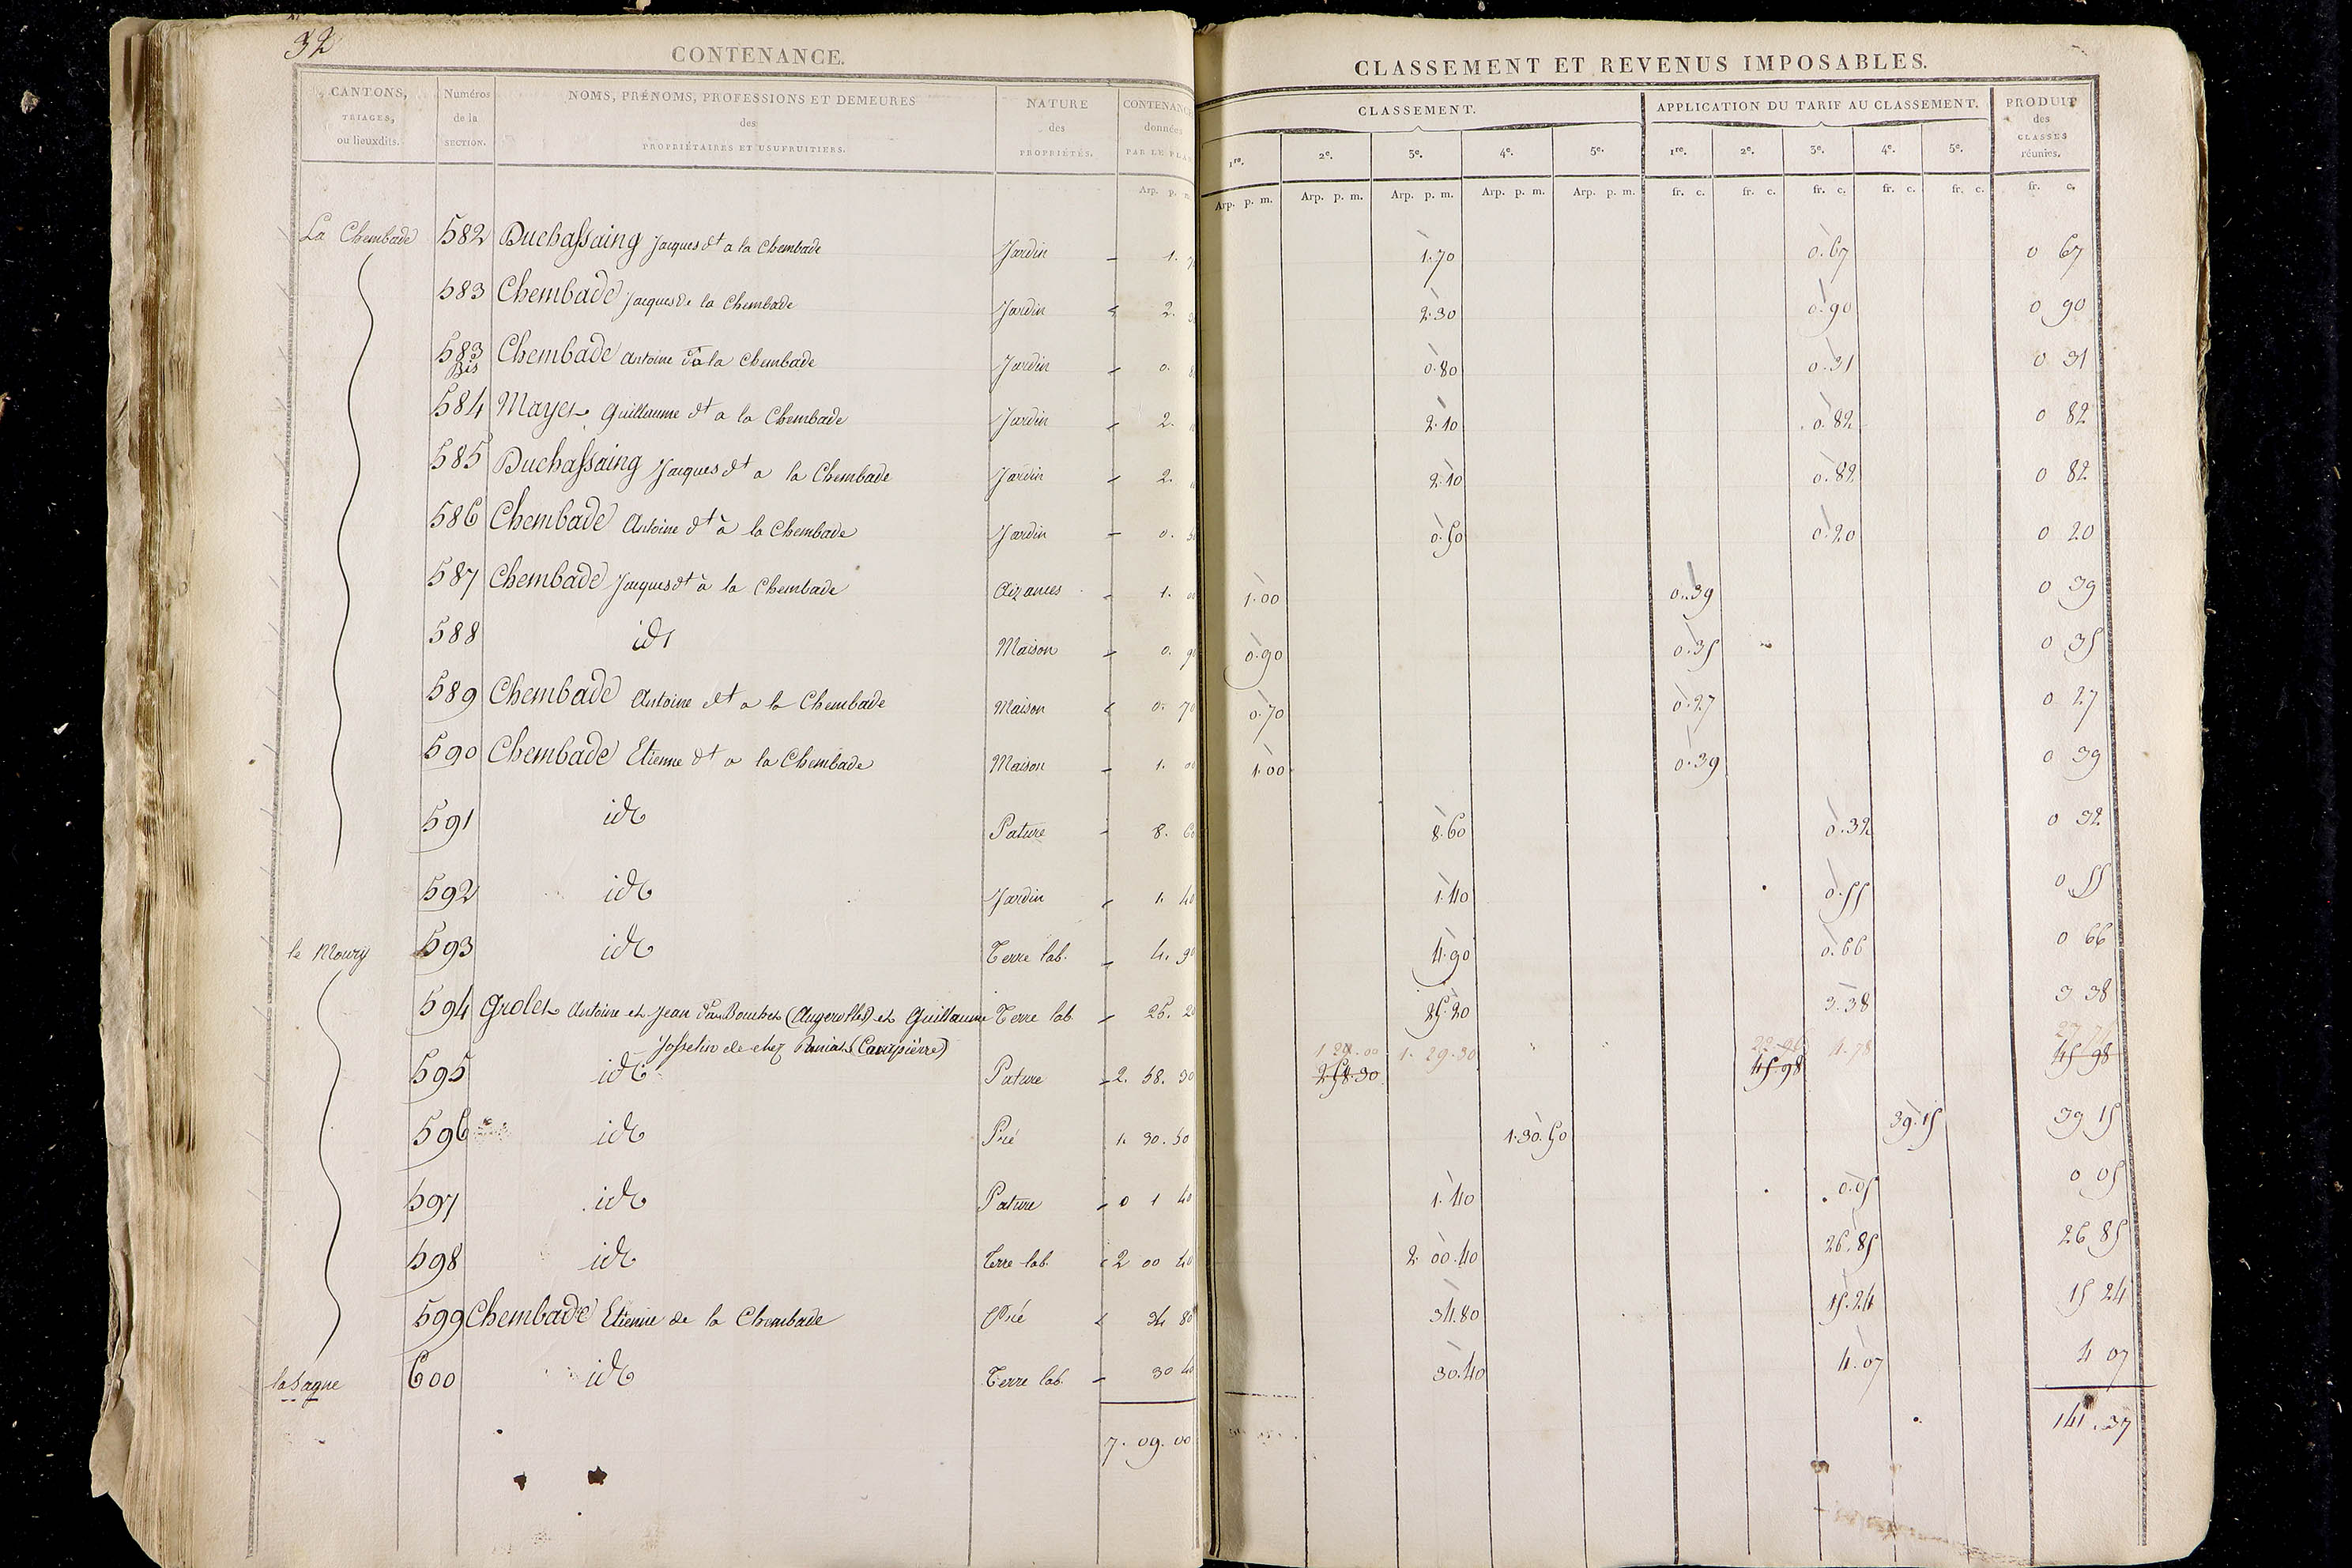 32
CONTENANCE.
CLASSEMENT ET REVENUS IMPOSABLES.
CANTONS, TRIAGES, ou lieuxdits. Numéros de la SECTION. NOMS, PRÉNOMS, PROFESSIONS ET DEMEURES des PROPRIÉTAIRES ET USUFRUITIERS. NATURE des PROPRIÉTÉS. CONTENANCE données PAR LE PLAN CLASSEMENT. APPLICATION DU TARIF AU CLASSEMENT. PRODUIT des CLASSES réunies.
1re. 2e. 3e. 4e. 5e. 1re. 2e. 3e. 4e. 5e.
Arp. p. m. Arp. p. m. Arp. p. m. Arp. p. m. Arp. p. m. Arp. p. m. fr. c. fr. c. fr. c. fr. c. fr. c. fr. c.
La Chembade 582 Duchassaing Jacques dt a la Chembade Jardin - 1. 70 1.70 0.67 0 67
583 Chembade Jacques de la Chembade Jardin 2. 30 2.30 0.90 0 90
583 Bis Chembade Antoine dt a la Chembade Jardin - 0. 80 0.80 0.31 0 31
584 Mayet Guillaume dt a la Chembade Jardin - 2. 10 2.10 0.82 0 82
585 Duchassaing Jacques dt a la Chembade Jardin - 2. 10 2.10 0.82 0 82
586 Chembade Antoine dt à la Chembade Jardin - 0. 50 0.50 0.20 0 20
587 Chembade Jacques dt à la Chembade Aizances - 1. 00 1.00 0.39 0 39
588 idt Maison - 0. 90 0.90 0.35 0 35
589 Chembade Antoine dt a la Chembade Maison 0. 70 0.70 0.27 0 27
590 Chembade Etienne dt a la Chembade Maison - 1. 00 1.00 0.39 0 39
591 id Pature - 8. 60 8.60 0.32 0 32
592 id Jardin - 1. 40 1.40 0.55 0 55
le Moury 593 id Terre lab. - 4. 90 4.90 0.66 0 66
594 Grolet Antoine et Jean (Augerolles) et Guillaume Terre lab. - 25. 20 25.20 3.38 3 38
Josselin de chez (Courpierre)
1. 29.30 4.78
595 id Pature - 2. 58. 30 2.58.30 45.98 45 98
596 id Pré 1. 30. 50 1.30.50 39.15 39 15
597 id Pature - 0 1 40 1.40 0.05 0 05
598 id Terre lab. 2 00 40 2.00.40 26.85 26 85
599 Chembade Etienne de la Chembade Pré 34 80 34.80 15.24 15 24
la Sagne 600 id Terre lab. - 30 40 30.40 4.07 4 07
7. 09. 00 141.37